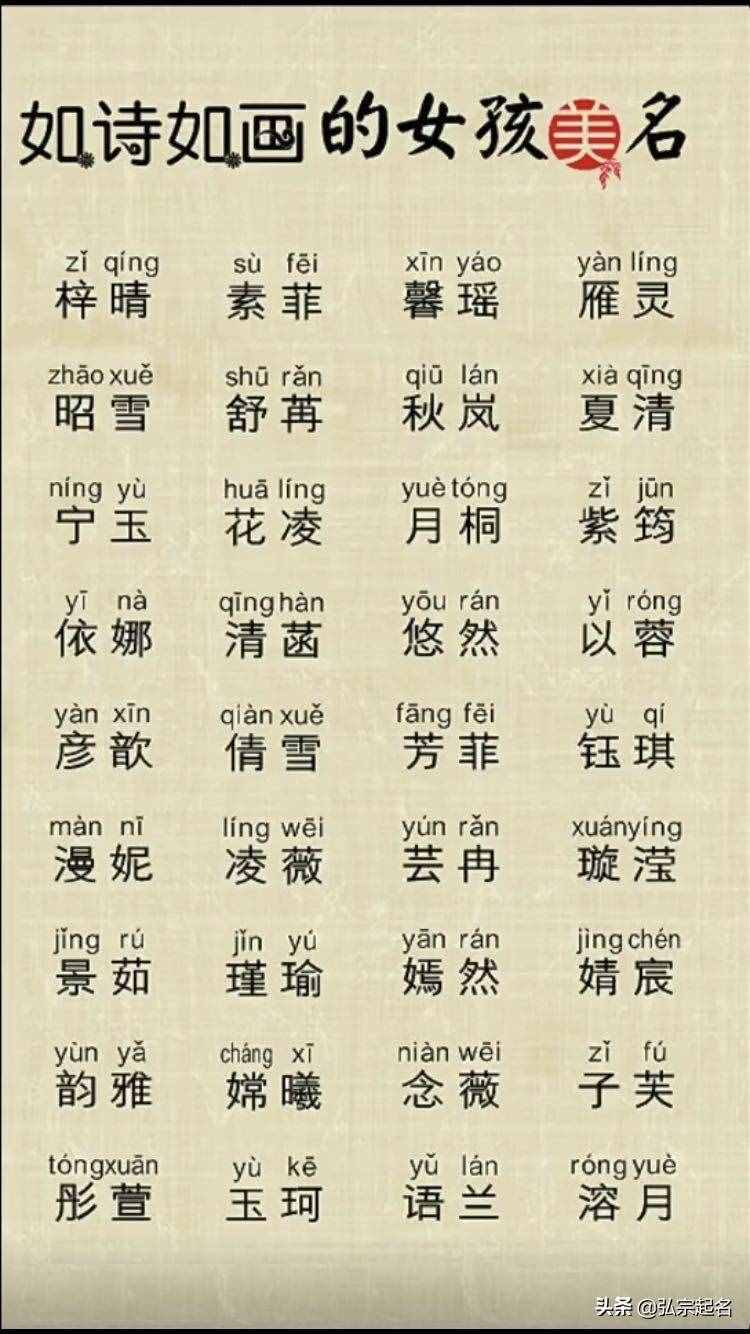 如诗如画的女孩美名
zǐ qíng sù fēi xīn yáo yàn líng
梓晴 素菲 馨瑶 雁灵
zhāo xuě shū rǎn qiū lán xià qīng
昭雪 舒苒 秋岚 夏清
níng yù huā líng yuè tóng zǐ jūn
宁玉 花凌 月桐 紫筠
yī nà qīng hàn yōu rán yǐ róng
依娜 清菡 悠然 以蓉
yàn xīn qiàn xuě fāng fēi yù qí
彦歆 倩雪 芳菲 钰琪
màn nī líng wēi yún rǎn xuán yíng
漫妮 凌薇 芸冉 璇滢
jǐng rú jǐn yú yān rán jìng chén
景茹 瑾瑜 嫣然 婧宸
yùn yǎ cháng xī niàn wēi zǐ fú
韵雅 嫦曦 念薇 子芙
tóng xuān yù kē yǔ lán róng yuè
彤萱 玉珂 语兰 溶月
头条 @弘宗起名